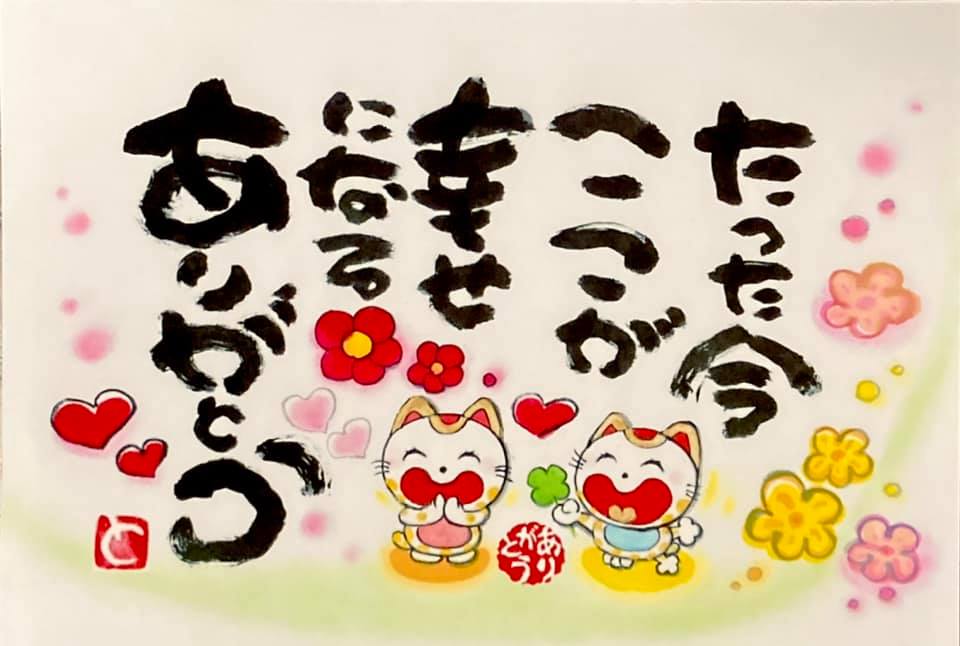 たった今
ここが
幸せ
になる
ありがとう
ありがとう
と